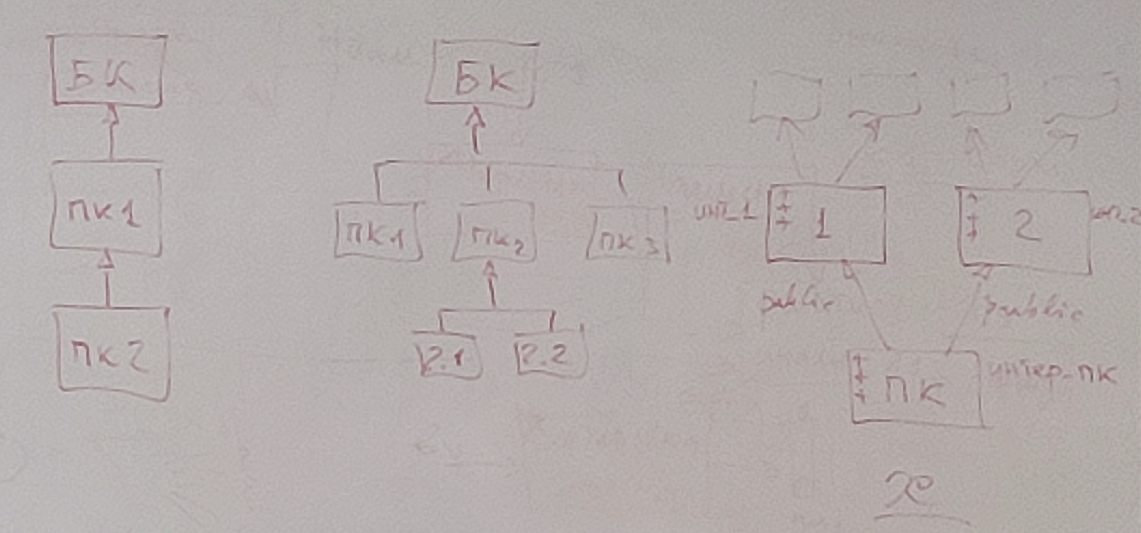 БК
ПК1
ПК2
БК
ПК1 ПК2 ПК3
2.1 2.2
инт_1 +++ 1
+++ 2
public public
+++ ПК интер-ПК